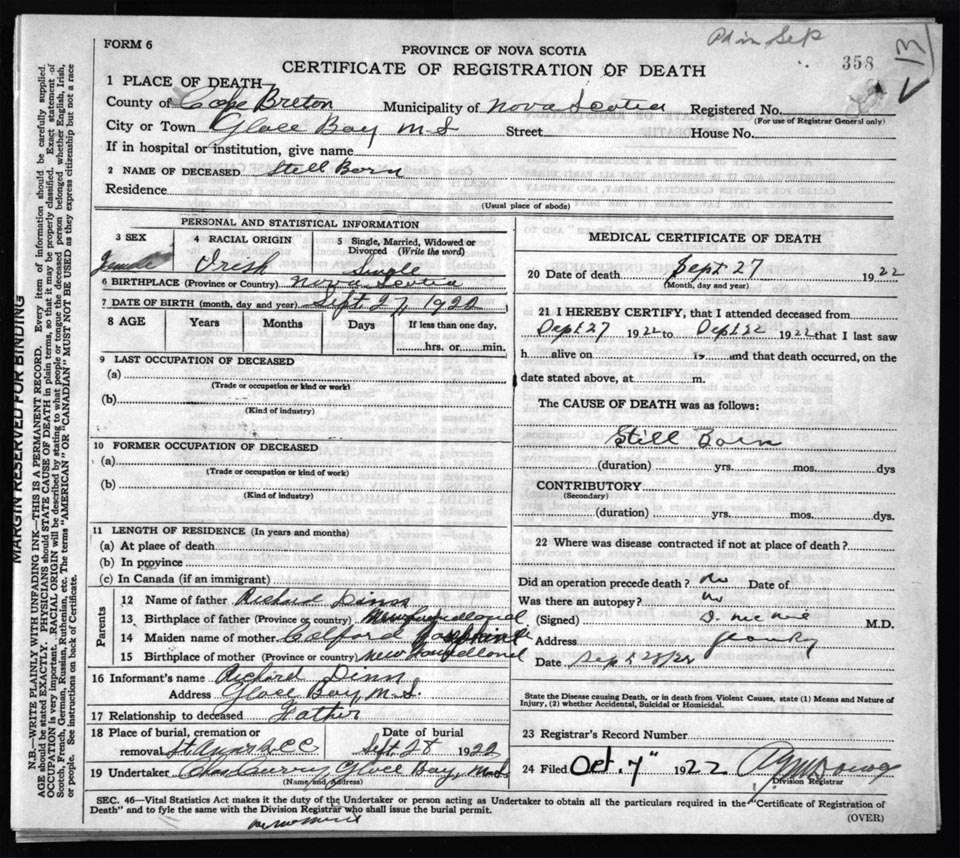 Pd in Sep
13
FORM 6
PROVINCE OF NOVA SCOTIA
358
CERTIFICATE OF REGISTRATION OF DEATH
1 PLACE OF DEATH—
County of Cape Breton Municipality of Nova Scotia Registered No.
(For use of Registrar General only)
City or Town Glace Bay N.S Street House No.
If in hospital or institution, give name
2 NAME OF DECEASED Still Born
Residence
(Usual place of abode)
PERSONAL AND STATISTICAL INFORMATION
3 SEX 4 RACIAL ORIGIN 5 Single, Married, Widowed or Divorced (Write the word)
Female Irish Single
6 BIRTHPLACE (Province or Country) Nova Scotia
7 DATE OF BIRTH (month, day and year) Sept. 27 1922
8 AGE Years Months Days If less than one day,
hrs. or min.
9 LAST OCCUPATION OF DECEASED
(a)
(Trade or occupation or kind or work)
(b)
(Kind of industry)
10 FORMER OCCUPATION OF DECEASED
(a)
(Trade or occupation or kind or work)
(b)
(Kind of industry)
11 LENGTH OF RESIDENCE (In years and months)
(a) At place of death
(b) In province
(c) In Canada (if an immigrant)
Parents
12 Name of father Richard Dinn
13 Birthplace of father (Province of country) Newfoundland
14 Maiden name of mother
15 Birthplace of mother (Province or country) Newfoundland
16 Informant's name Richard Dinn
Address Glace Bay N.S.
17 Relationship to deceased Father
18 Place of burial, cremation or removal Date of burial
Sept. 28 1922
19 Undertaker Chas Curry, Glace Bay, N.S
(Name and Address)
MEDICAL CERTIFICATE OF DEATH
20 Date of death Sept 27 1922
(Month, day and year)
21 I HEREBY CERTIFY, that I attended deceased from
Sept 27 1922 to Sept 22 1922 that I last saw
h alive on 19 and that death occurred, on the
date stated above, at m.
The CAUSE OF DEATH was as follows:
Still Born
(duration) yrs. mos. dys
CONTRIBUTORY
(Secondary)
(duration) yrs. mos. dys.
22 Where was disease contracted if not at place of death?
Did an operation precede death? no Date of
Was there an autopsy? no
(Signed) M.D.
Address
Date Sept 28/22
State the Disease causing Death, or in death from Violent Causes, state (1) Means and Nature of
Injury, (2) whether Accidental, Suicidal or Homicidal.
23 Registrar's Record Number
24 Filed Oct. 7" 1922
Division Registrar
SEC. 46—Vital Statistics Act makes it the duty of the Undertaker or person acting as Undertaker to obtain all the particulars required in the "Certificate of Registration of
Death" and to fyle the same with the Division Registrar who shall issue the burial permit.
(OVER)
MARGIN RESERVED FOR BINDING
N.B.—WRITE PLAINLY WITH UNFADING INK—THIS IS A PERMANENT RECORD. Every item of information should be carefully supplied.
AGE should be stated EXACTLY. PHYSICIANS should STATE CAUSE OF DEATH in plain terms, so that it may be properly classified. Exact statement of
OCCUPATION is very important. RACIAL ORIGIN will be described by stating to what people or tongue the deceased person belonged whether English, Irish,
Scotch, French, German, Russian, Ruthenian, etc. The terms "AMERICAN" OR "CANADIAN" MUST NOT BE USED as they express citizenship but not a race
or people. See instructions on back of Certificate.